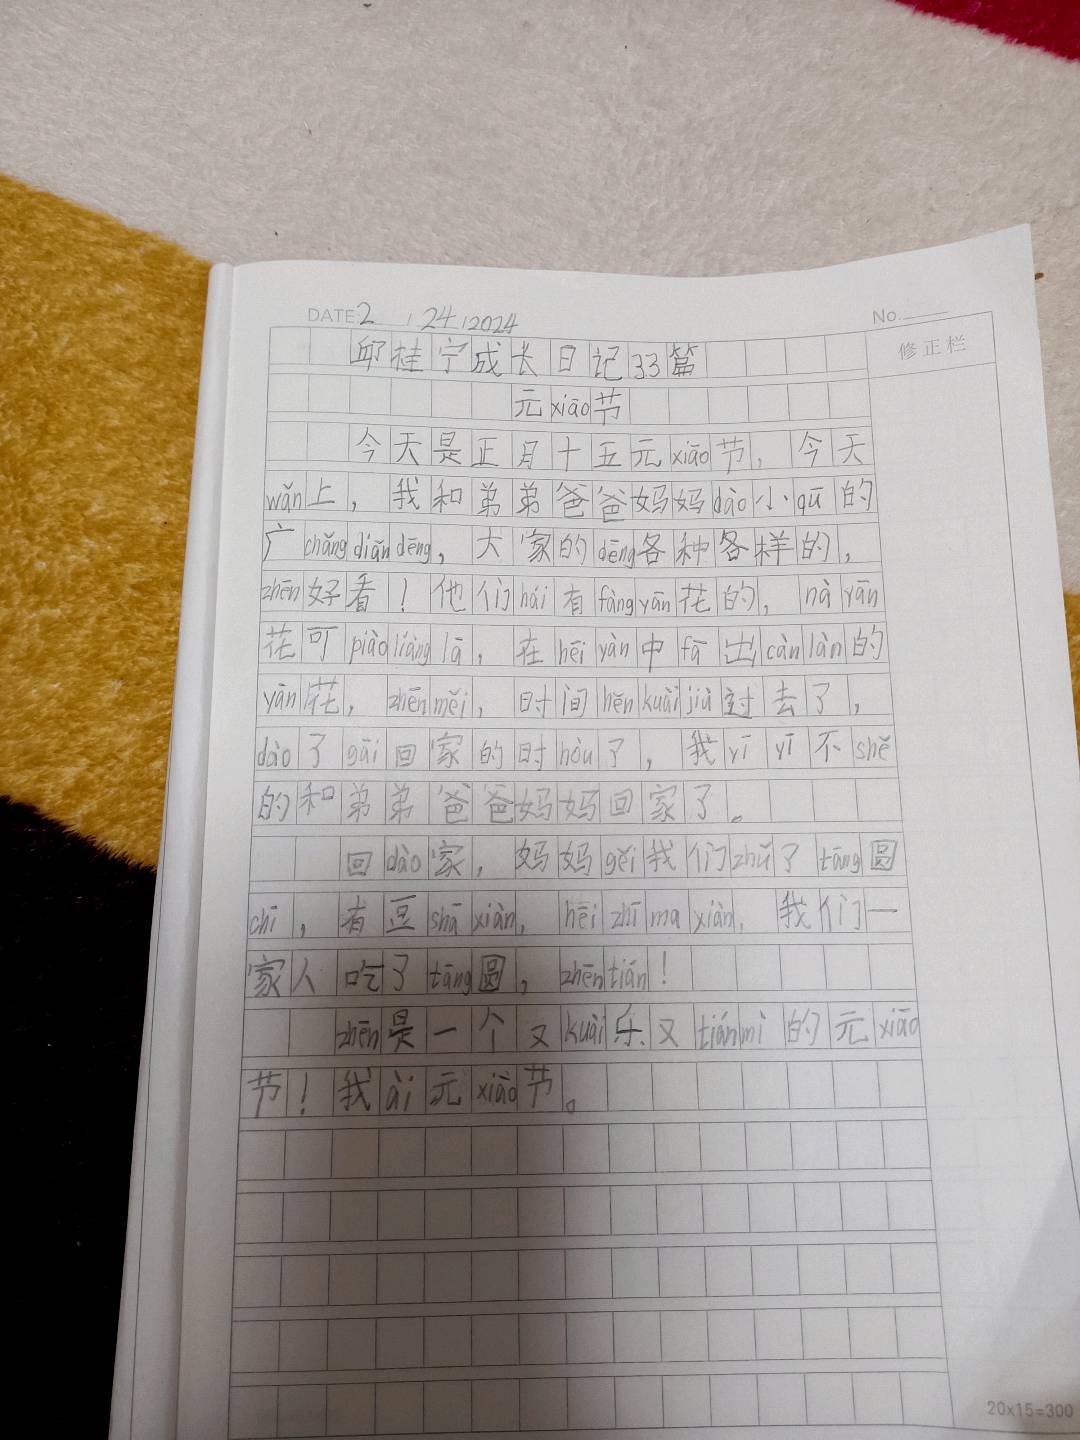 DATE 2 / 24 / 2024
No.
修正栏
邱桂宁成长日记33篇
元xiāo节
今天是正月十五元xiāo节，今天
wǎn上，我和弟弟爸爸妈妈dào小qū的
广chǎng diǎn dēng，大家的dēng各种各样的，
zhēn好看！他们hái有fàng yān花的，nà yān
花可piào liàng lā，在hēi yàn中fā出càn làn的
yān花，zhēn měi，时间hěn kuài jiù过去了，
dào了gāi回家的时hòu了，我yī yī不shě
的和弟弟爸爸妈妈回家了。
回dào家，妈妈gěi我们zhǔ了tāng圆
chī，有豆shā xiàn，hēi zhī ma xiàn，我们一
家人吃了tāng圆，zhēn tián！
zhēn是一个又kuài乐又tián mì的元xiāo
节！我ài元xiāo节。
20×15=300